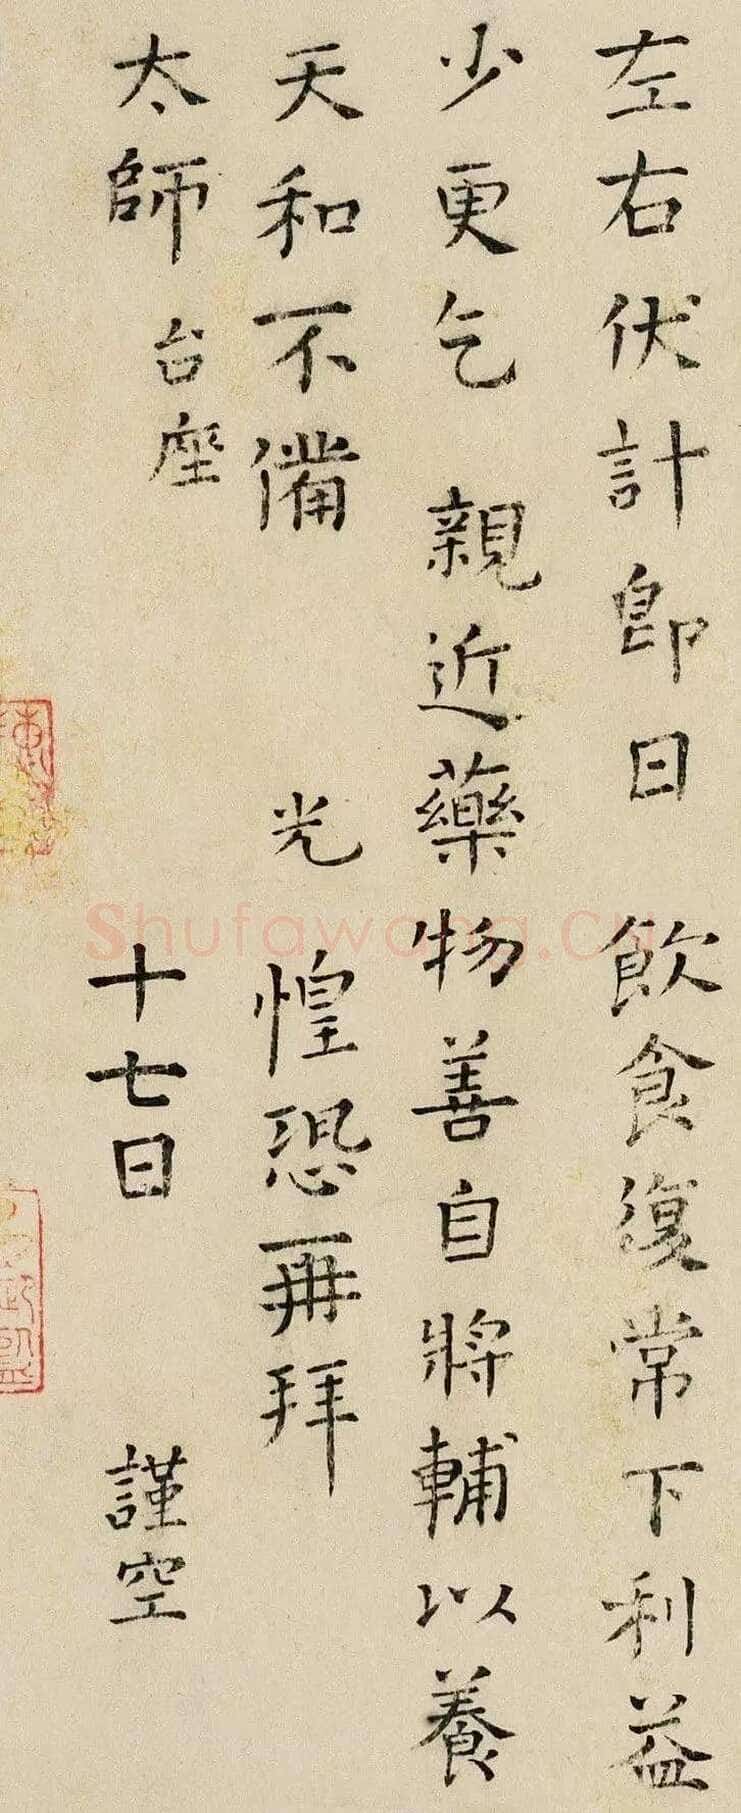 左右伏計即日 飲食復常下利益
少更乞 親近藥物善自將輔以養
天和不備 光 惶恐再拜
太師 台座 十七日 謹空
Shufawang.Cn